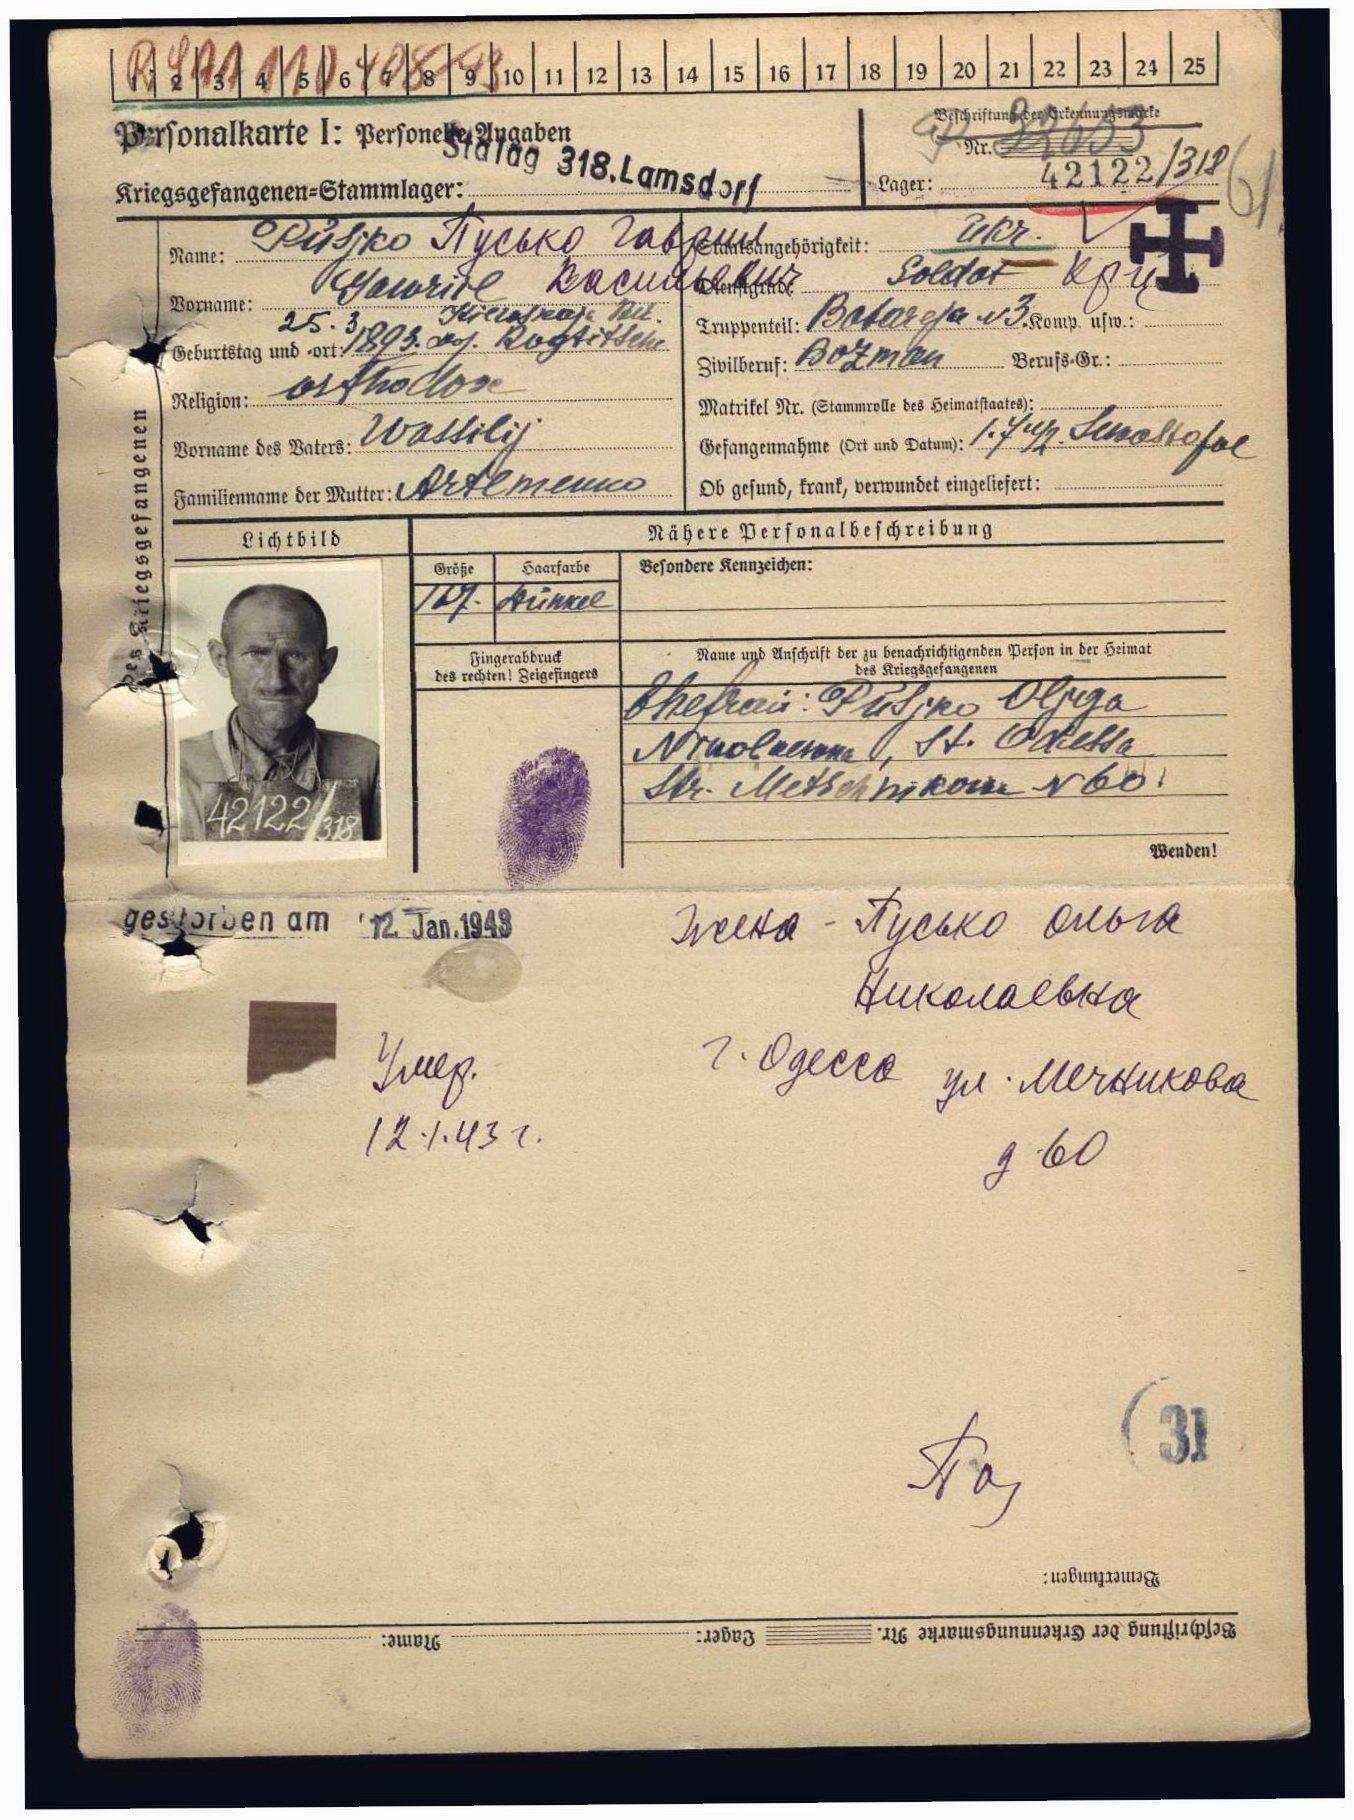 1 2 3 4 5 6 7 8 9 10 11 12 13 14 15 16 17 18 19 20 21 22 23 24 25
Personalkarte I: Personelle Angaben
Stalag 318. Lamsdorf
Kriegsgefangenen=Stammlager:
Beschriftung der Erkennungsmarke
Nr. 32653
Lager: 42122/318
61
des Kriegsgefangenen
Name: Pusjko Пусько Гавриил
Vorname: Gawriil Васильевич
25.3. Kiewskaja
Geburtstag und -ort: 1893.
Religion: orthodox
Vorname des Vaters: Wassilij
Familienname der Mutter: Artemenko
Staatsangehörigkeit: Ukr.
Dienstgrad: Soldat Крц
Truppenteil: Batareja N3. Komp. usw.:
Zivilberuf: Bozman Berufs-Gr.:
Matrikel Nr. (Stammrolle des Heimatstaates):
Gefangennahme (Ort und Datum): 1.7.42. Sewastopol
Ob gesund, krank, verwundet eingeliefert:
Lichtbild
Nähere Personalbeschreibung
Größe Haarfarbe Besondere Kennzeichen:
167. dunkel
Fingerabdruck
des rechten! Zeigefingers
Name und Anschrift der zu benachrichtigenden Person in der Heimat
des Kriegsgefangenen
Ehefrau: Pusjko Oljga
Nikolaewna, St. Odessa
Str. Metschnikowa N 60.
42122/318
Wenden!
gestorben am 12. Jan. 1943
Жена - Пусько Ольга
Николаевна
г. Одесса ул. Мечникова
д 60
Умер.
12.1.43 г.
31
Bemerkungen:
Beschriftung der Erkennungsmarke Nr. Lager: Name: